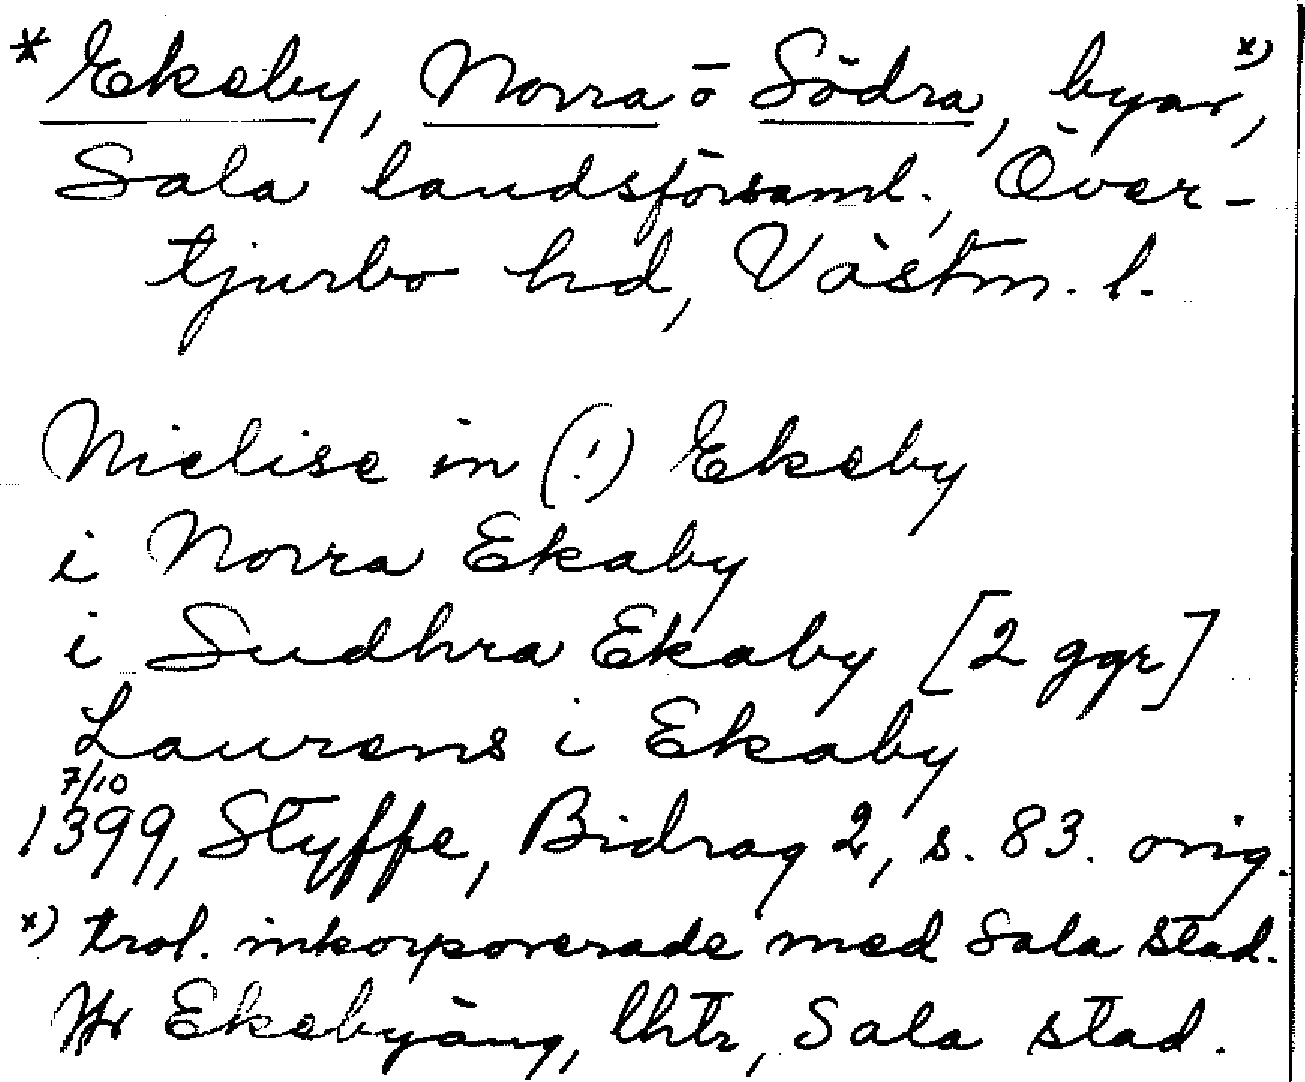 * Ekeby, Norra o Södra, byar, x)
Sala landsförsaml., Över-
tjurbo hd, Västm. l.
Nielise in (!) Ekeby
i Norra Ekaby
i Sudhra Ekaby [2 ggr]
Laurens i Ekaby
7/10
1399, Styffe, Bidrag 2, s. 83. orig.
x) trol. inkorporerade med Sala stad.
Jfr Ekebyäng, lhtr, Sala stad.